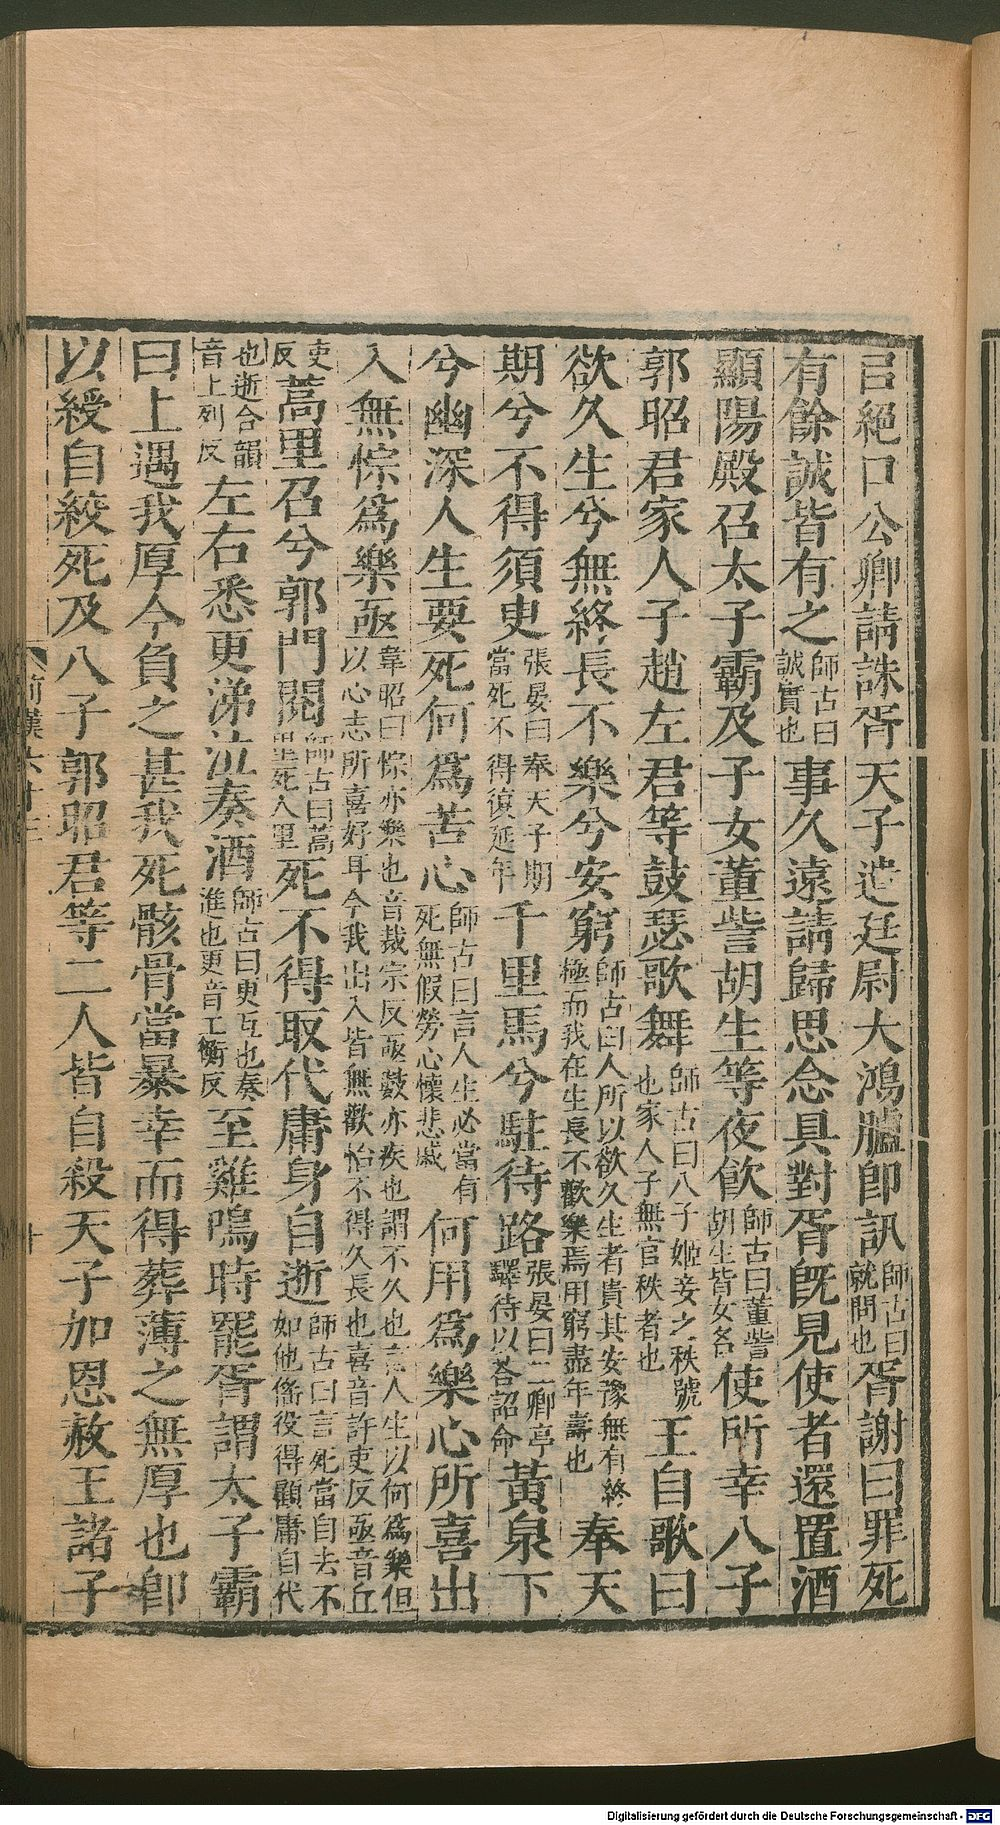 㠯絕口公卿請誅胥天子遣廷尉大鴻臚即訊師古曰就問也胥謝曰罪死
有餘誠皆有之師古曰誠實也事久遠請歸思念具對胥旣見使者還置酒
顯陽殿召太子霸及子女董訾胡生等夜飲師古曰董訾胡生皆女名使所幸八子
郭昭君家人子趙左君等鼓瑟歌舞師古曰八子姬妾之秩號也家人子無官秩者也王自歌曰
欲久生兮無終長不樂兮安窮師古曰人所以欲久生者貴其安豫無有終極而我在生長不歡樂焉用窮盡年壽也奉天
期兮不得須臾張晏曰奉天子期當死不得復延年千里馬兮駐待路張晏曰二卿亭驛待以荅詔命黃泉下
兮幽深人生要死何爲苦心師古曰言人生必當有死無假勞心懷悲慼何用爲樂心所喜出
入無悰爲樂亟韋昭曰悰亦樂也音裁宗反亟數亦疾也謂不久也言人生以何爲樂但以心志所喜好耳今我出入皆無歡怡不得久長也喜音許吏反亟音丘
吏反蒿里召兮郭門閱師古曰蒿里死人里死不得取代庸身自逝師古曰言死當自去不如他徭役得顧庸自代
也逝合韻音上列反左右悉更涕泣奏酒師古曰更互也奏進也更音工衡反至雞鳴時罷胥謂太子霸
曰上遇我厚今負之甚我死骸骨當暴幸而得葬薄之無厚也卽
以綬自絞死及八子郭昭君等二人皆自殺天子加恩赦王諸子
前漢六十三
十
Digitalisierung gefördert durch die Deutsche Forschungsgemeinschaft - DFG